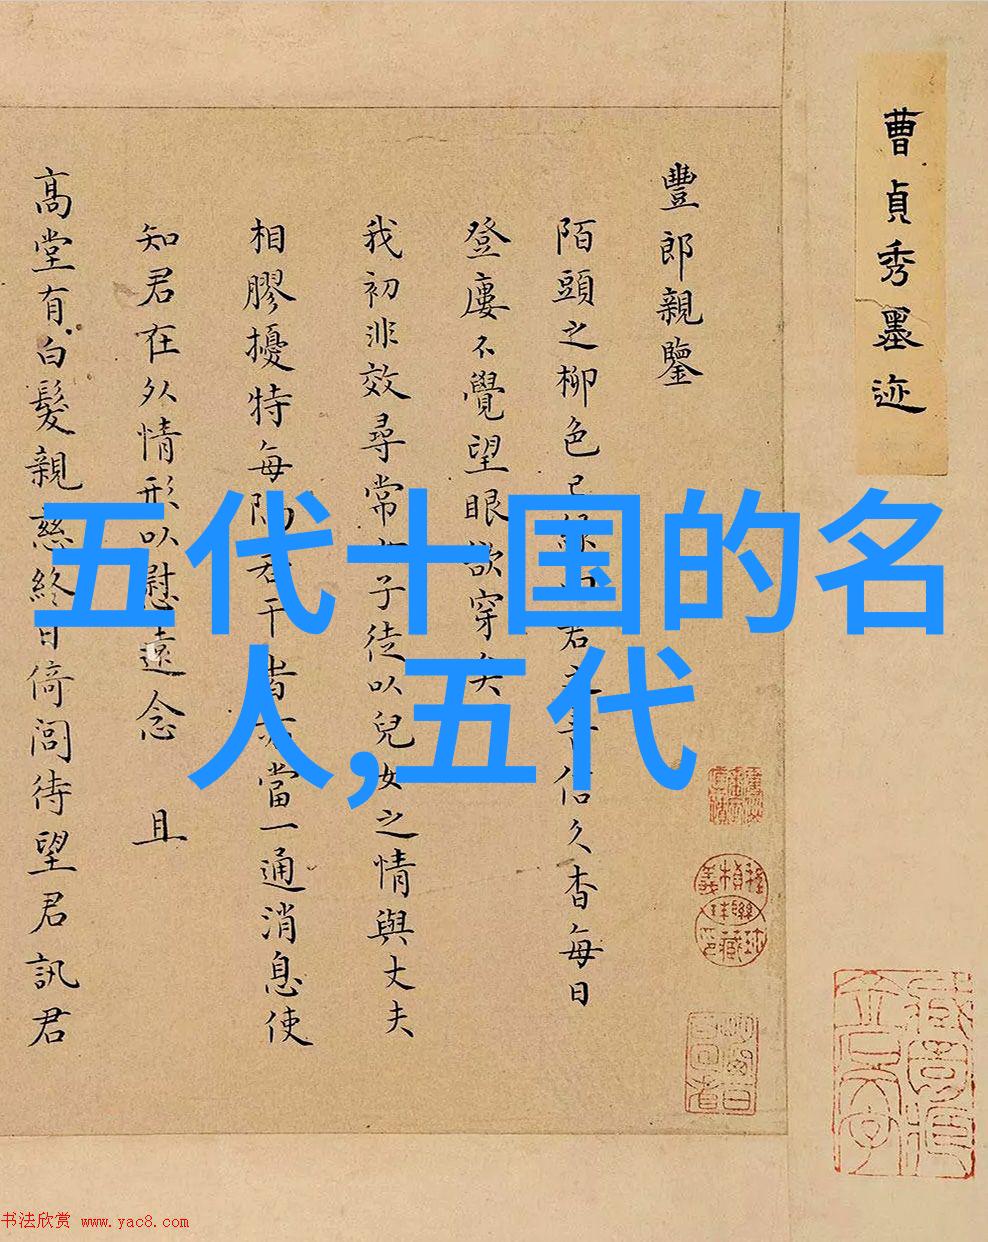 曹貞秀墨迹
豐郎親鑒
陌頭之柳色已君之音信久杳每日
登廔不覺望眼欲穿矣
我初非效尋常女子徒以兒女之情與丈夫
相膠擾特每隔若干旹亦當一通消息使
知君在外情形以慰遠念 且
高堂有白髮親慈終日倚閭待望君訊君
五代十国的名
人,五代
书法欣赏 www.yac8.com